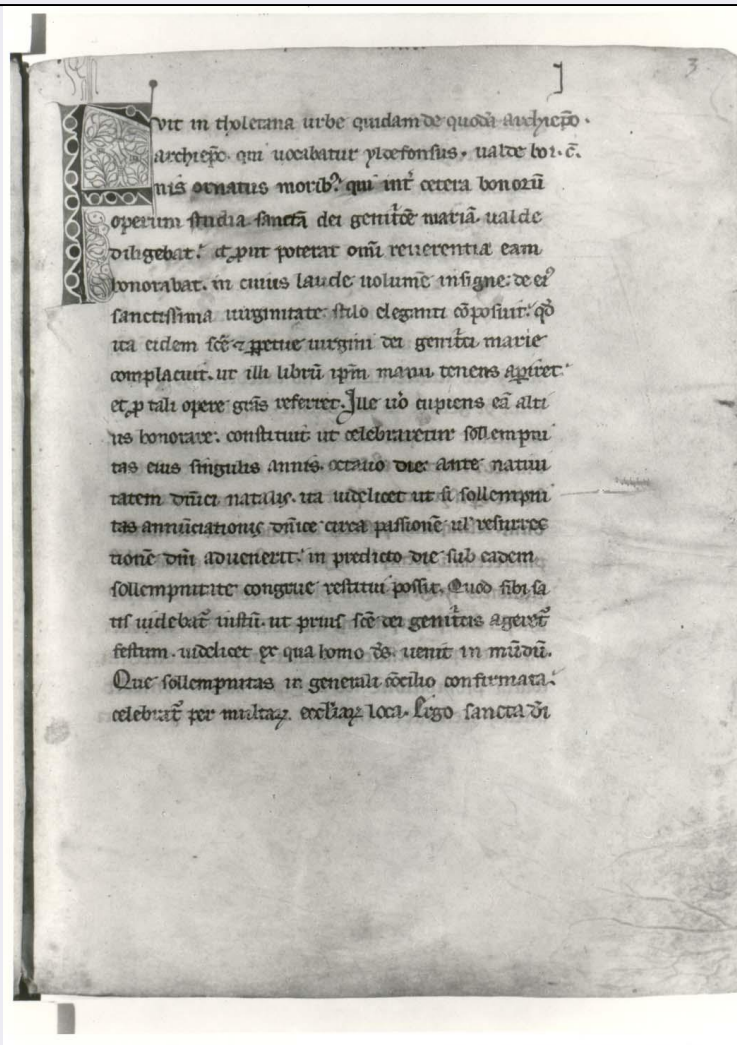 3
Fvit in tholetana urbe quidam de quodā archiepō.
archiepc. qui uocabatur yldefonsus. ualde bo
nis ornatus morib; qui int cetera bonorū
operum studia. sanctā dei genitͥcē mariā. ualde
diligebat. et put poterat omī reuerentia eam
honorabat. in cuius laude uolumē insigne: de ei
sanctissima uirginitate stilo eleganti cōposuit. qd̄
ita eidem scē ⁊ ppetue uirgini dei genitͥci marie
complacuit. ut illi librū ipm̄ manu tenens appiret.
et p tali opere grās referret. Ille uo cupiens eā alti
us honorare. constituit ut celebraretur sollempni
tas eius singulis annis. octauo die ante natiui
tatem dnīci natalis. ita uidelicet ut si sollempni
tas annūciationis dnīce circa passionē ul resurrec
tionē dnī aduenerit. in predicto die sub eadem
sollempnitate congrue restitui possit. Quod sibi sa
tis uidebat iustū. ut prius scē dei genitͥcis ageret
festum. uidelicet ex qua homo ds̄. uenit in mūdū.
Que sollempnitas in generali cōcilio confirmata.
celebrat per multaꝝ ecclīaꝝ loca. Ergo sancta dī